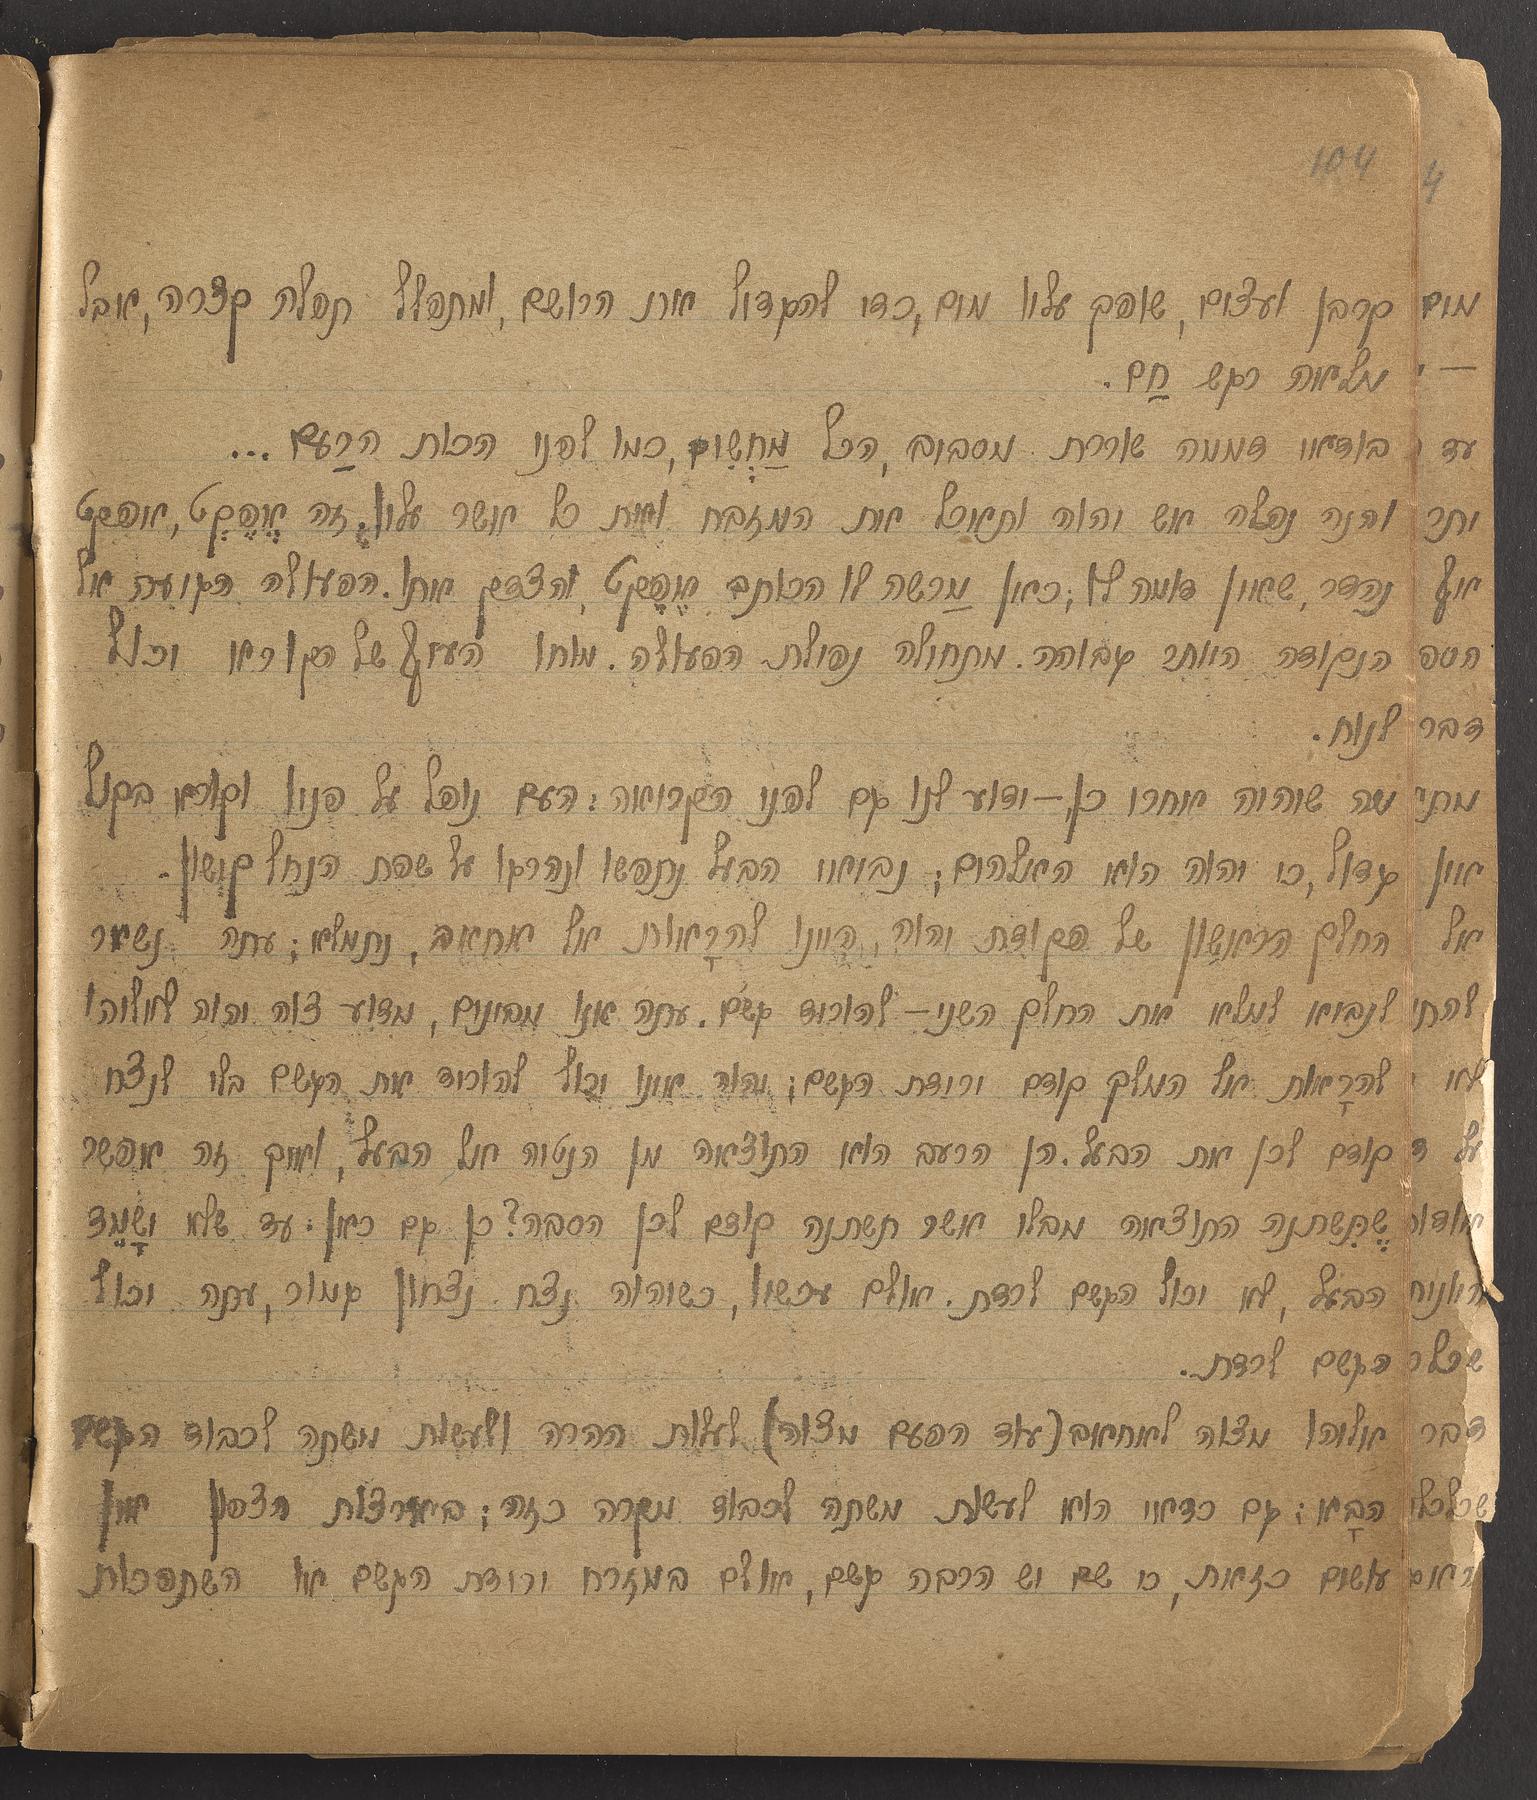 104
קרבן ועצים, שופך עליו מים, כדי להגדיל את הרושם, ומתפלל תפלה קצרה, אבל
מלאה רגש חַם.
בודאי דממה שוררת מסביב, הכל מַחֲשִׁים, כמו לפני הכות הרַעם...
והנה נפלה אש יהוה ותאכל את המזבח ואת כל אשר עליו. זה אֶפֶקְט, אפקט
נהדר, שאין דומה לו; כאן מַרשה לו הכותב אֶפֶקט, והצדק אתו. הפעולה הגיעה אל
הנקודה היותר גבוהה. מתחילה נפילת הפעולה. מוחו העיף של הקורא יכול
לנוח.
מה שהיה אחרי כן, – ידוע לנו גם לפני הקריאה: העם נופל על פניו וקורא בקול
גדול, כי יהוה הוא האלהים; נביאי הבעל נתפשו ונהרגו על שפת הנחל קישון.
החלק הראשון של פקודת יהוה, היינו להרָאות אל אחאב, נתמלא; עתה נשאר
לנביא למלא את החלק השני – להוריד גשם. עתה אנו מבינים, מדוע צוה יהוה לאליהו
להרָאות אל המלך קודם ירידת הגשם; יהוה אינו יכול להוריד את הגשם בלי לנצח
קודם לכן את הבעל. הן הרעב הוא התוצאה מן הנטיה אל הבעל, ואיך זה אפשר
שֶׁתִּשתנה התוצאה מבלי אשר תשתנה קודם לכן הסבה? כן גם כאן: עד שלא יִשָׁמֵד
הבעל, לא יכול הגשם לרדת. אולם עכשיו, כשיהוה נצח נצחון גמור, עתה יכול
הגשם לרדת.
אליהו מצוה לאחאב (עוד הפעם מצוה) לעלות ההרה ולעשות משתה לכבוד הגשם
הבָא; גם כדאי הוא לעשות משתה לכבוד מקרה כזה; בארצות הצפון אין
עושים כזאת, כי שם יש הרבה גשם, אולם במזרח ירידת הגשם או השתפכות